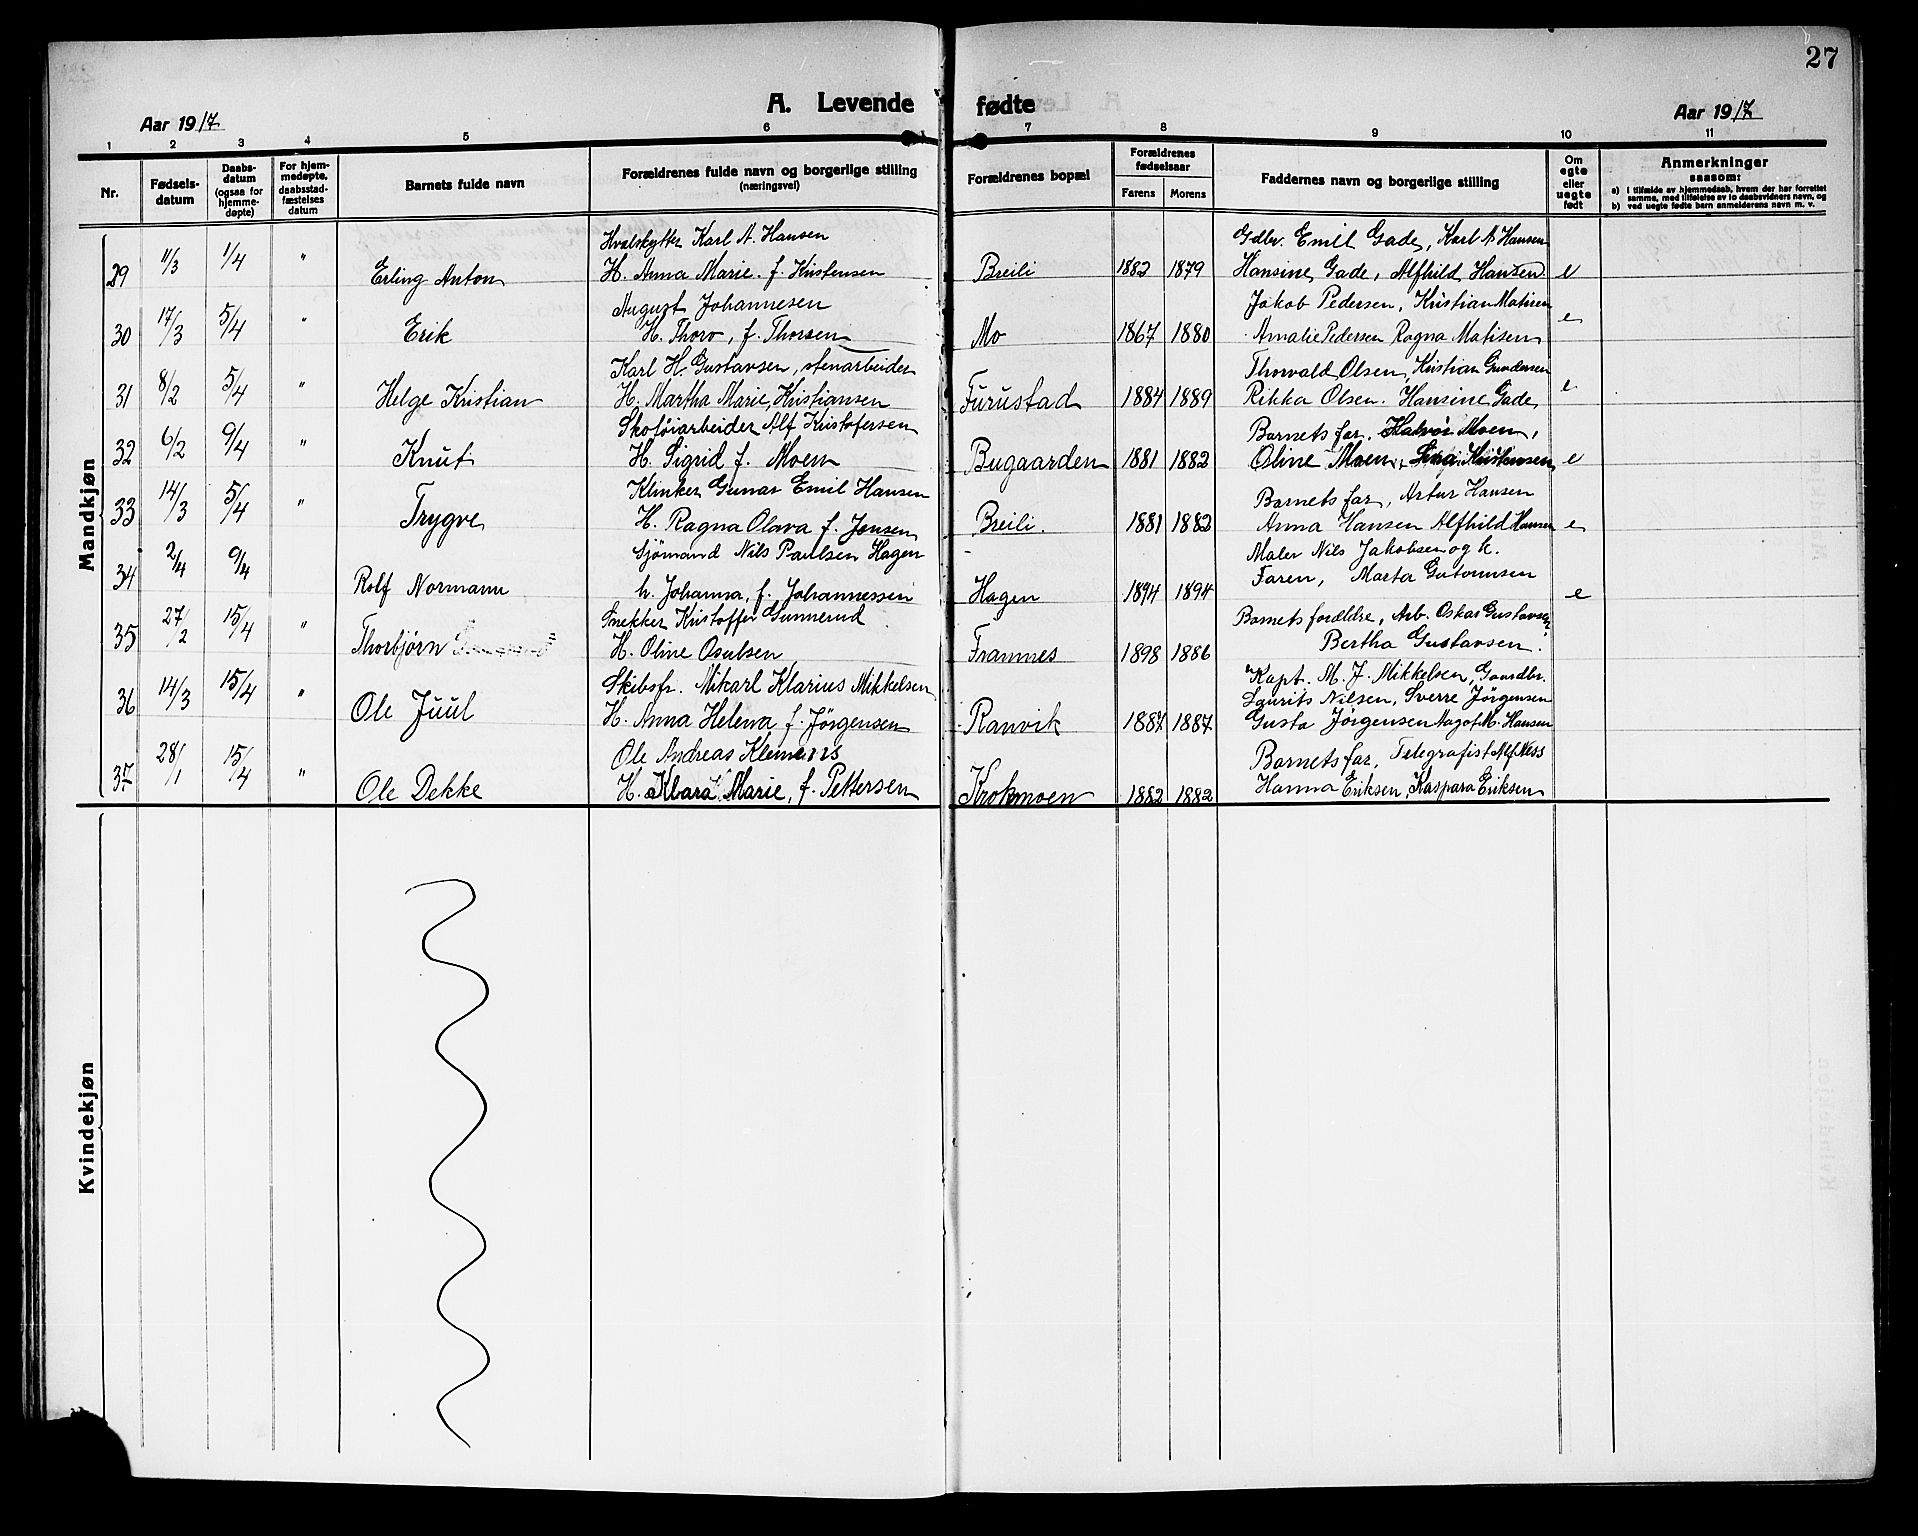 27
A. Levende fødte
Aar 1917
Aar 1917
1 2 3 4 5 6 7 8 9 10 11
Nr.
Fødsels-
datum
Daabs-
datum
(ogsaa for
hjemme-
døpte)
For hjem-
medøpte,
daabsstad-
fæstelses
datum
Barnets fulde navn
Forældrenes fulde navn og borgerlige stilling
(næringsvei)
Forældrenes bopæl
Forældrenes
fødselsaar
Farens Morens
Faddernes navn og borgerlige stilling
Om
egte
eller
uegte
født
Anmerkninger
saasom:
a) I tilfælde av hjemmedaab, hvem der har forrettet
samme, med tilføielse av to daabsvidners navn, og
b) ved uegte fødte barn anmelderens navn m. v.
Mandkjøn
Hvalskytter Karl A. Hansen Gdbr. Emil Gade, Karl A Hansen
29 11/3 1/4 " Erling Anton H. Anna Marie. f. Kristensen Breili 1882 1879 Hansine Gade, Alfhild Hansen e
August Johannesen Jakob Pedersen, Kristian Matisen
30 17/3 5/4 " Erik H. Thora, f. Thorsen Mo 1867 1880 Amalie Pedersen Ragna Matisen e
Karl H. Gustavsen, stenarbeider Thorvald Olsen, Kristian Gundersen
31 8/2 5/4 " Helge Kristian H. Martha Marie, Kristiansen Furustad 1884 1889 Rikka Olsen. Hansine Gade e
Skotøiarbeider Alf Kristofersen Barnets far. Halvor Moen,
32 6/2 9/4 " Knut H. Sigrid f. Moen Bugaarden 1881 1882 Oline Moen, Lina Kristensen e
Klinker Gunar Emil Hansen Barnets far, Artur Hansen
33 14/3 5/4 " Trygve H. Ragna Olava f. Jensen Breili. 1881 1882 Anna Hansen Alfhild Hansen e
Sjömand Nils Paulsen Hagen Maler Nils Jakobsen og h.
34 2/4 9/4 Rolf Normann h. Johanna, f. Johannessen Hagen 1894 1894 Faren, Marta e
Snekker Kristoffer Gunnerud Barnets forældre, Arb. Oskar Gustavsen,
35 27/2 15/4 " Thorbjørn H. Oline Osulsen Framnes 1898 1886 Bertha Gustavsen.
Skibsfr. Mikarl Klarius Mikkelsen Kapt. M. J. Mikkelsen, Gaardbr.
Lauritz Nilsen, Sverre Jörgensen
36 14/3 15/4 " Ole Juul H. Anna Helena f. Jørgensen Ranvik 1887 1887 Gusta Jørgensen Aagot M. Hansen
Ole Andreas Klemens Barnets far, Telegrafist Alf Ness
37 28/1 15/4 " Ole Dekke H. Klara Marie, f. Pettersen Krokmoen 1882 1882 Hanna Eriksen, Kaspara Eriksen
Kvindekjøn